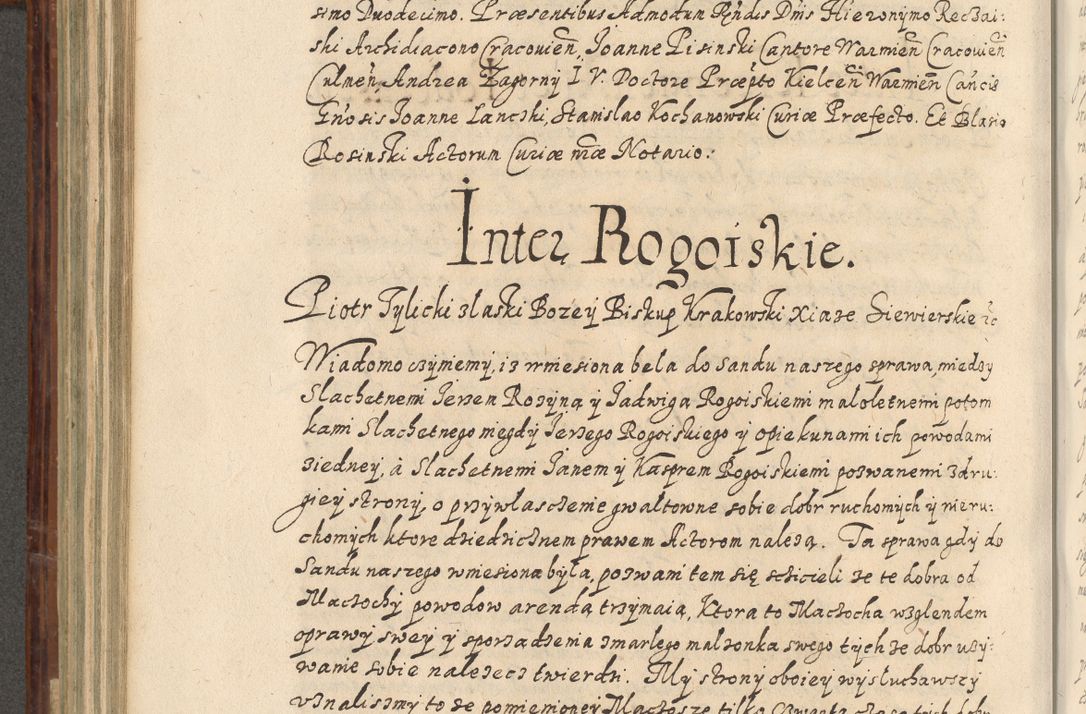 simo Duodecimo. Præsentibus Admodum Rndis Dnis Hieronymo Reczai:
ski Archidiacono Cracouien, Joanne Pisinski Cantore Warmien Cracouien
Culmen, Andrea Zagorny I V. Doctore Præpto Kielcen Warmien Cancis
Gnosis Joanne Lancski, Stanislao Kochanowski Curiæ Præfecto. Et Blasio
Rosinski Actorum Curiæ mæ Notario:
Inter Rogoiskie.
Piotr Tylicki z laski Bozey Biskup Krakowski Xiaze Siewierskie etc
Wiadomo czyniemy, iz wniesiona bela do Sandu naszego sprawa, miedzy
Slachetnemi Jerzen Rozyną y Jadwigą Rogoiskiemi maloletnemi potom
kami Slachetnego niegdy Jerzego Rogoiskiego y opiekunami ich powodami
ziedney, à Slachetnemi Janem y Kasprem Rogoiskiemi pozwanemi zdru:
giey strony, o przywlasczenie gwaltowne sobie dobr ruchomych y nieru:
chomych ktore dziedzicznem prawem Actorom należą. Ta sprawa gdy do
Sandu naszego wniesiona była, pozwani tem się scicieli ze te dobra od
Maczochy powodow arendą trzymaią, Ktora to Maczocha wzglendem
oprawy swey y sporządzenia zmarlego malzonka swego tych ze dobr uzy:
wanie sobie nalezec twierdzi. My strony oboiey wysluchawszy
vznalismy to ze pomienioney Maczosze tilko Czwarta częsc tych dobr